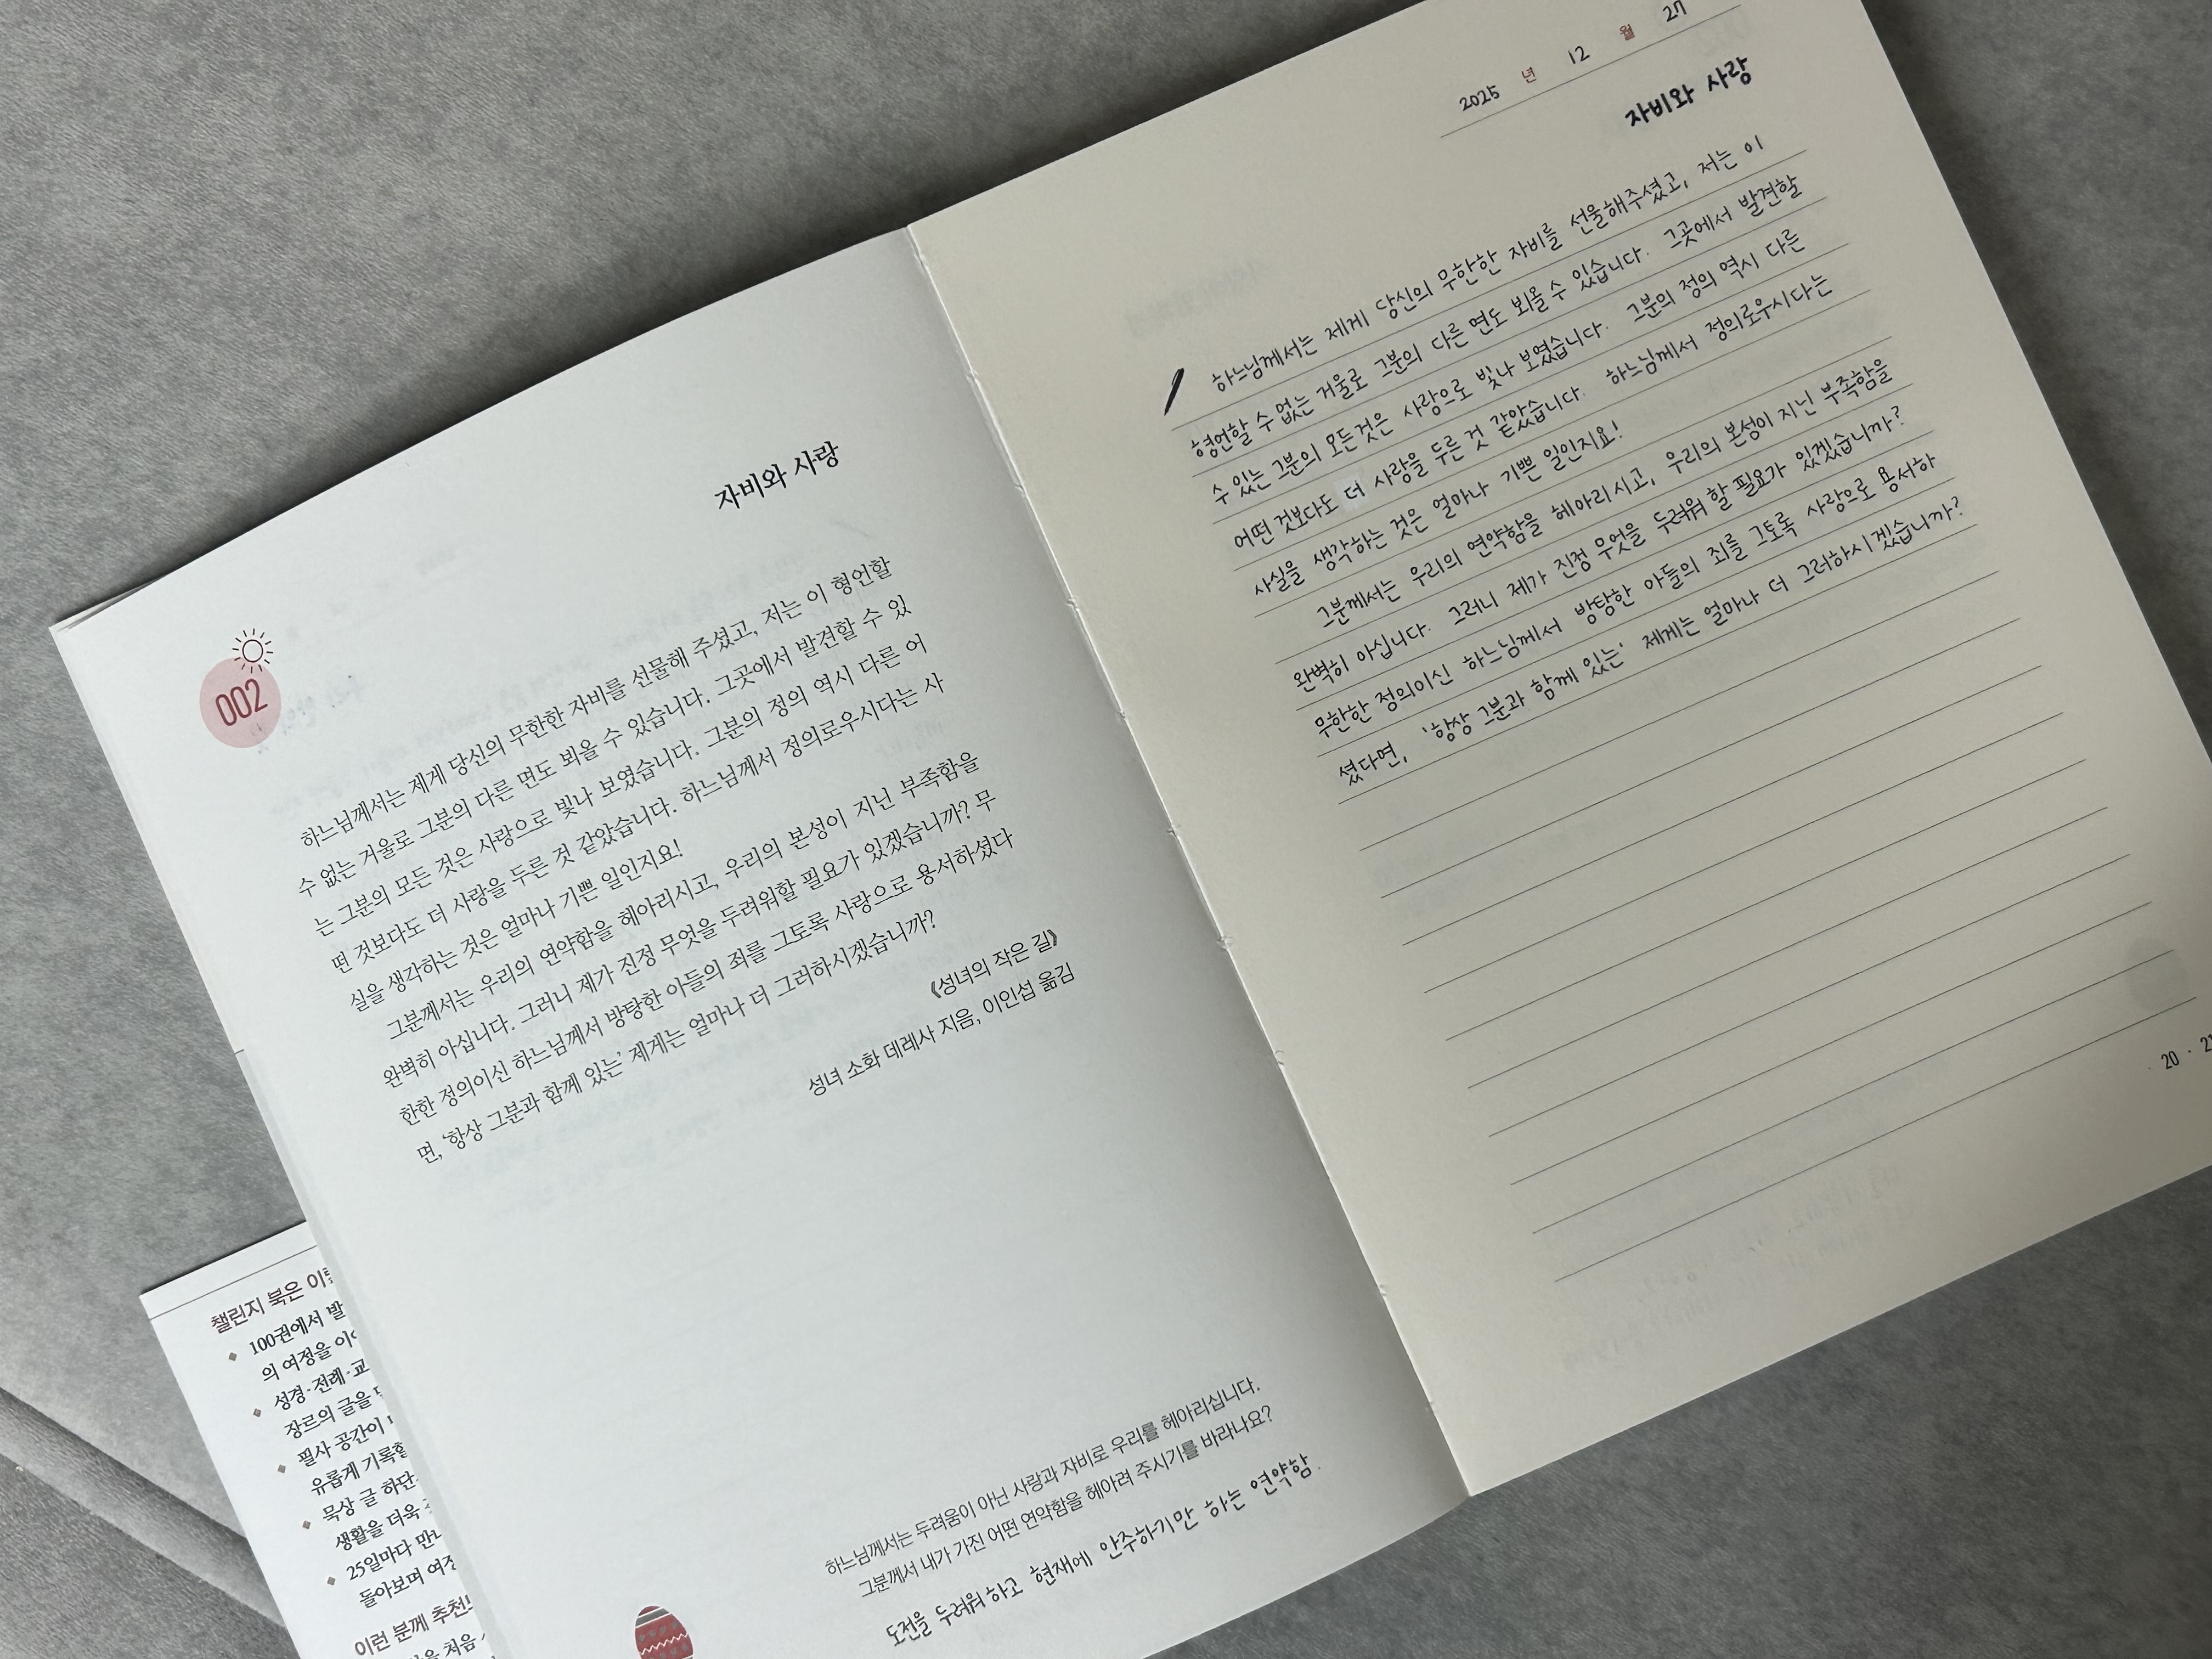 002
자비와 사랑
하느님께서는 제게 당신의 무한한 자비를 선물해 주셨고, 저는 이 형언할
수 없는 거울로 그분의 다른 면도 뵈올 수 있습니다. 그곳에서 발견할 수 있
는 그분의 모든 것은 사랑으로 빛나 보였습니다. 그분의 정의 역시 다른 어
떤 것보다도 더 사랑을 두른 것 같았습니다. 하느님께서 정의로우시다는 사
실을 생각하는 것은 얼마나 기쁜 일인지요!
그분께서는 우리의 연약함을 헤아리시고, 우리의 본성이 지닌 부족함을
완벽히 아십니다. 그러니 제가 진정 무엇을 두려워할 필요가 있겠습니까? 무
한한 정의이신 하느님께서 방탕한 아들의 죄를 그토록 사랑으로 용서하셨다
면, ‘항상 그분과 함께 있는’ 제게는 얼마나 더 그러하시겠습니까?
《성녀의 작은 길》
성녀 소화 데레사 지음, 이인섭 옮김
하느님께서는 두려움이 아닌 사랑과 자비로 우리를 헤아리십니다.
그분께서 내가 가진 어떤 연약함을 헤아려 주시기를 바라나요?
도전을 두려워하고 현재에 안주하기만 하는 연약함.
2025 년 12 월 27
자비와 사랑
하느님께서는 제게 당신의 무한한 자비를 선물해주셨고, 저는 이
형언할 수 없는 거울로 그분의 다른 면도 뵈올 수 있습니다. 그곳에서 발견할
수 있는 그분의 모든것은 사랑으로 빛나 보였습니다. 그분의 정의 역시 다른
어떤 것보다도 더 사랑을 두른 것 같았습니다. 하느님께서 정의로우시다는
사실을 생각하는 것은 얼마나 기쁜 일인지요!
그분께서는 우리의 연약함을 헤아리시고, 우리의 본성이 지닌 부족함을
완벽히 아십니다. 그러니 제가 진정 무엇을 두려워 할 필요가 있겠습니까?
무한한 정의이신 하느님께서 방탕한 아들의 죄를 그토록 사랑으로 용서하
셨다면, '항상 그분과 함께 있는' 제게는 얼마나 더 그러하시겠습니까?
20 · 21
챌린지 북은
100권에서
의 여정을
성경·전례·교
장르의 글을
필사 공간이
유롭게
묵상 글 하단
생활을 더욱
25일마다
돌아보며
이런 분께
처음